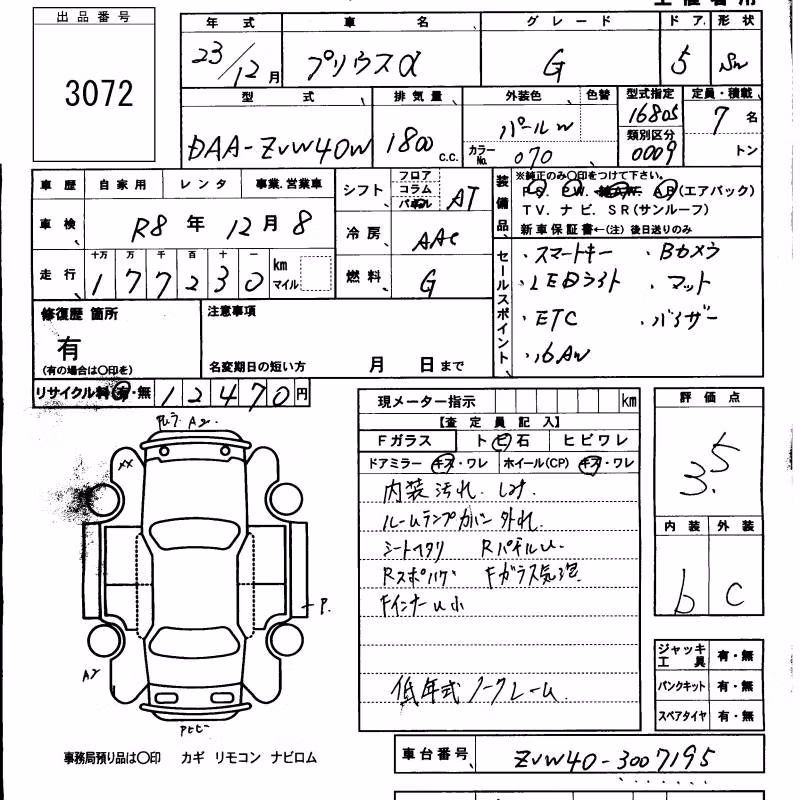 出品番号
3072
年 式 車 名 グレード ドア 形状
23/12月 プリウスα G 5 SW
型 式 排気量 外装色 色替 型式指定 定員・積載
DAA-ZVW40W 1800 C.C. パールW 16805 7名
カラーNo. 070 類別区分 0009 トン
車歴 自家用 レンタ 事業.営業車
車検 R8年 12月8
走行 十万 万 千 百 十 一
1 7 7 2 3 0 km マイル
シフト フロア コラム AT
冷房 AAC
燃料 G
装備品
※純正のみ〇印をつけて下さい。
P.S. P.W. A.B(エアバック)
T.V. ナビ. S R(サンルーフ)
新車保証書←(注) 後日送りのみ
セールスポイント
・スマートキー ・Bカメラ
・LEDライト ・マット
・ETC ・バイザー
・16AW
修復歴 箇所
有
(有の場合は〇印を)
注意事項
名変期日の短い方 月 日まで
リサイクル料 有・無 12470円
現メーター指示 km
【査定員記入】
Fガラス トビ石 ヒビワレ
ドアミラー キズ・ワレ ホイール(CP) キズ・ワレ
内装汚れ.
ルームランプカバー外れ
シートヘタリ RパネルU.
Fガラス気泡
FインナーU小
低年式ノークレーム
評価点
3.5
内装 外装
b C
ジャッキ 工具 有・無
パンクキット 有・無
スペアタイヤ 有・無
A2
XX
P.
A2
事務局預り品は〇印 カギ リモコン ナビロム
車台番号 ZVW40-3007195